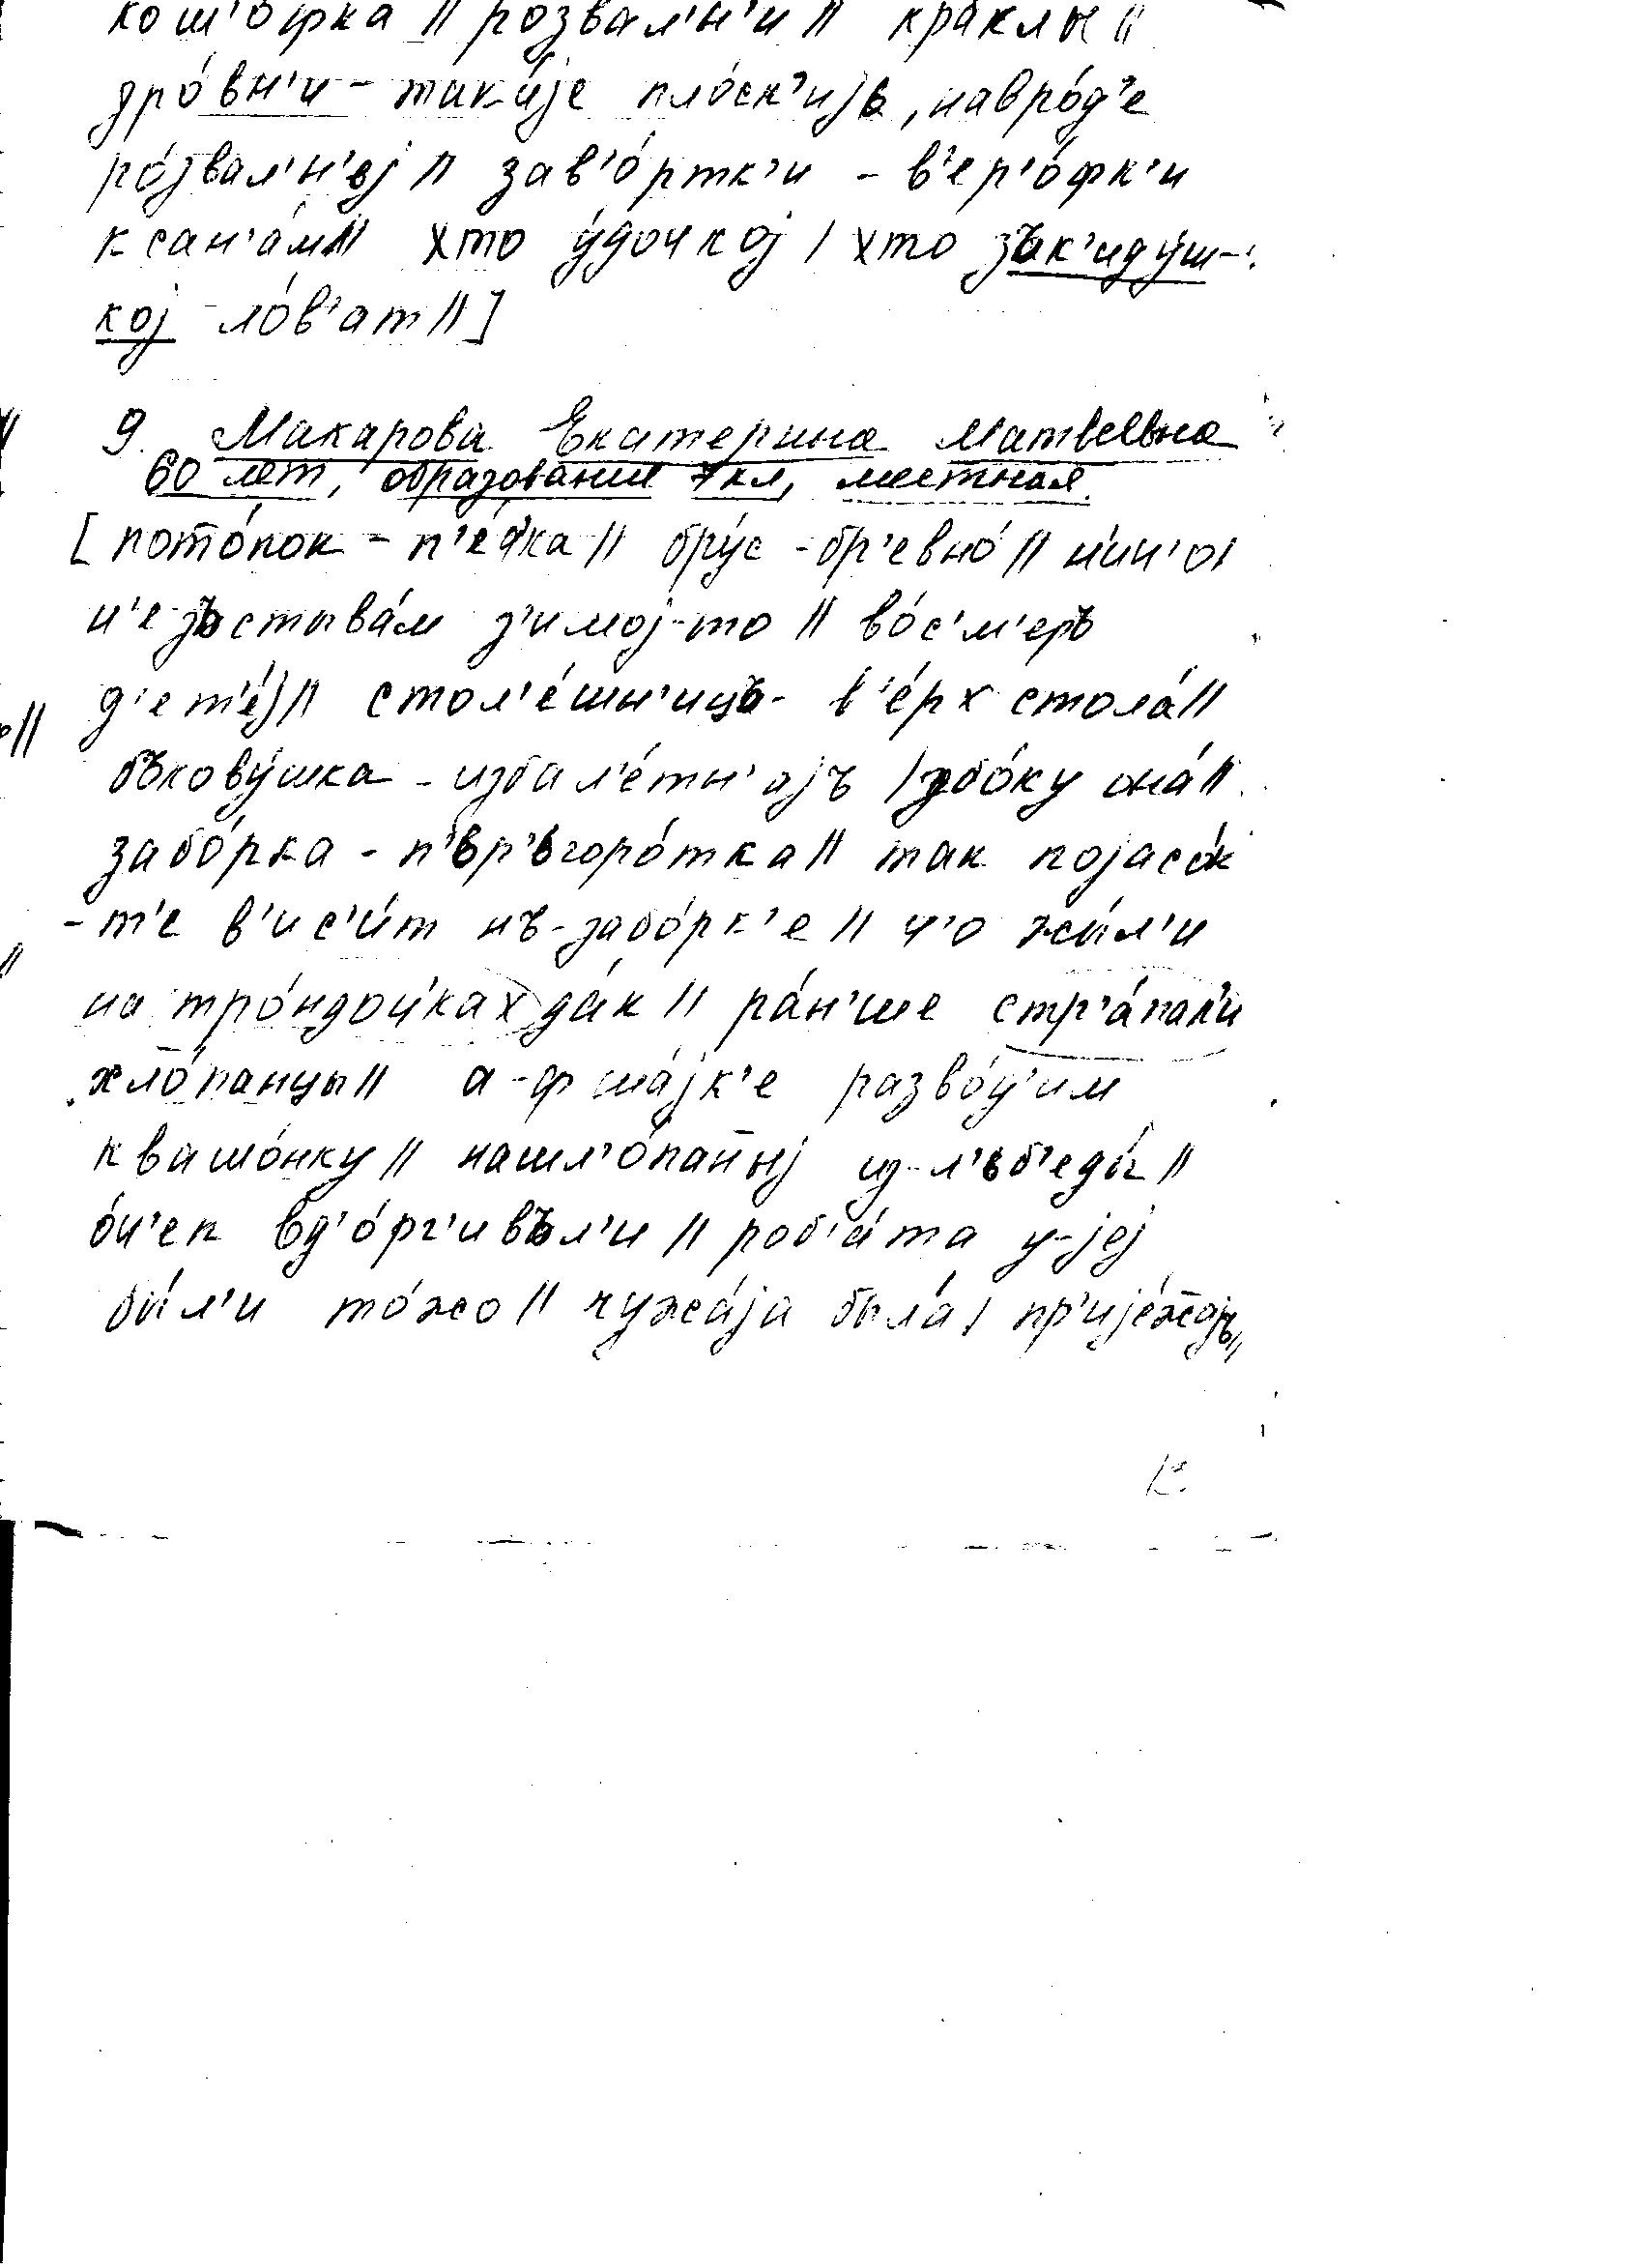 кош'о́фка // ро́звал'н'и // кра́клы //
дро́вн'и - так'и́jе пло́ск'иjь, навро́д'е
ро́звал'н'еj // зав'о́ртк'и - в'ер'о́фк'и
к сан'а́м // хто у́дочкоj / хто зък'иду́ш-
коj ло́в'ат // ]
9. Макарова Екатерина Матвеевна
60 лет, образование 7 кл, местная.
[ пото́пок - п'е́чка // бру́с - бр'евно́ // нич'о/
н'е-зъстыва́м з'имоj-то // во́с'м'еръ
д'ет'е́j // стол'е́шн'ицъ - в'е́рх стола́ //
бъкову́шка - изба л'е́тн'аjъ / збо́ку она́ //
забо́рка - п'ьр'ьгоро́тка // так поjасо́к
-т'е в'ис'и́т нъ-забо́рк'е // ч'о жы́л'и
на тро́ндоч'ках да́к // ра́н'ше стр'а́пал'и
хло́панцы // а-ф ша́jк'е разво́д'им
квашо́нку // нашл'о́паныj из-л'ьб'еды́ //
о́ч'еп вд'о́рг'ивъл'и // роб'а́та у-jеj
бы́л'и то́жо // чужа́jа была́ / пр'иjе́жджъjъ //